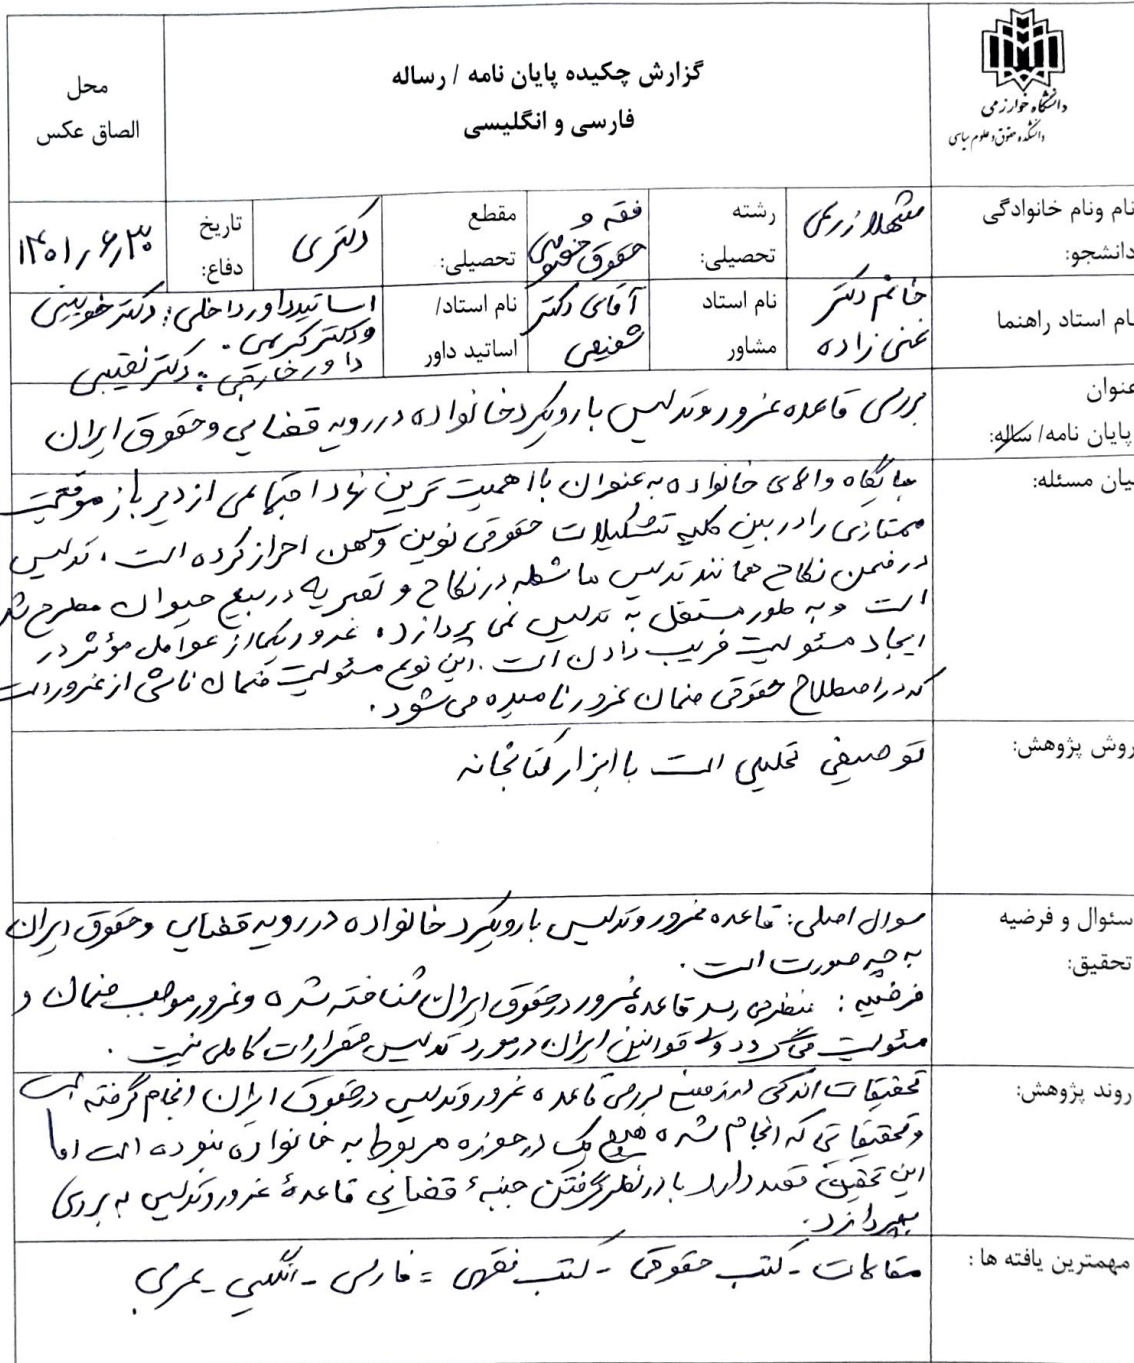 دانشگاه خوارزمی
دانشکده حقوق و علوم سیاسی
گزارش چکیده پایان نامه / رساله
فارسی و انگلیسی
محل
الصاق عکس
نام ونام خانوادگی
دانشجو:
رشته
تحصیلی:
فقه و
حقوق خصوصی
مقطع
تحصیلی:
دکتری
تاریخ
دفاع:
۱۴۰۱/۶/۳۰
نام استاد راهنما
خانم دکتر
غنی زاده
نام استاد
مشاور
آقای دکتر
شفیعی
نام استاد/
اساتید داور
اساتید داور داخلی: دکتر خویینی
و دکتر کریمی.
داور خارجی: دکتر نقیبی
عنوان
پایان نامه/ رساله:
بررسی قاعده غرور و تدلیس با رویکرد خانواده در رویه قضایی و حقوق ایران
بیان مسئله:
جایگاه والای خانواده به عنوان با اهمیت ترین نهاد اجتماعی از دیر باز موقعیت
ممتازی را در بین کلیه تشکیلات حقوقی نوین و کهن احراز کرده است، تدلیس
در ضمن نکاح همانند تدلیس ماشطه در نکاح و تصریه در بیع حیوان مطرح شده
است و به طور مستقل به تدلیس نمی پردازد. غرور یکی از عوامل مؤثر در
ایجاد مسئولیت فریب دادن است. این نوع مسئولیت ضمان ناشی از غرور است
که در اصطلاح حقوقی ضمان غرور نامیده می شود.
روش پژوهش:
توصیفی تحلیلی است با ابزار کتابخانه
سئوال و فرضیه
تحقیق:
سوال اصلی: قاعده غرور و تدلیس با رویکرد خانواده در رویه قضایی و حقوق ایران
به چه صورت است.
فرضیه: بنظر می رسد قاعده غرور در حقوق ایران شناخته شده و غرور موجب ضمان و
مسئولیت می گردد ولی قوانین ایران در مورد تدلیس مقررات کاملی نیست.
روند پژوهش:
تحقیقات اندکی در زمینه بررسی قاعده غرور و تدلیس در حقوق ایران انجام گرفته است
و تحقیقاتی که انجام شده هیچ یک در حوزه مربوط به خانواده نبوده است اما
این تحقیق قصد دارد با در نظر گرفتن جنبه قضایی قاعدهٔ غرور و تدلیس به بررسی
بپردازد.
مهمترین یافته ها:
مقالات - کتب حقوقی - کتب فقهی = فارسی - انگلیسی - عربی